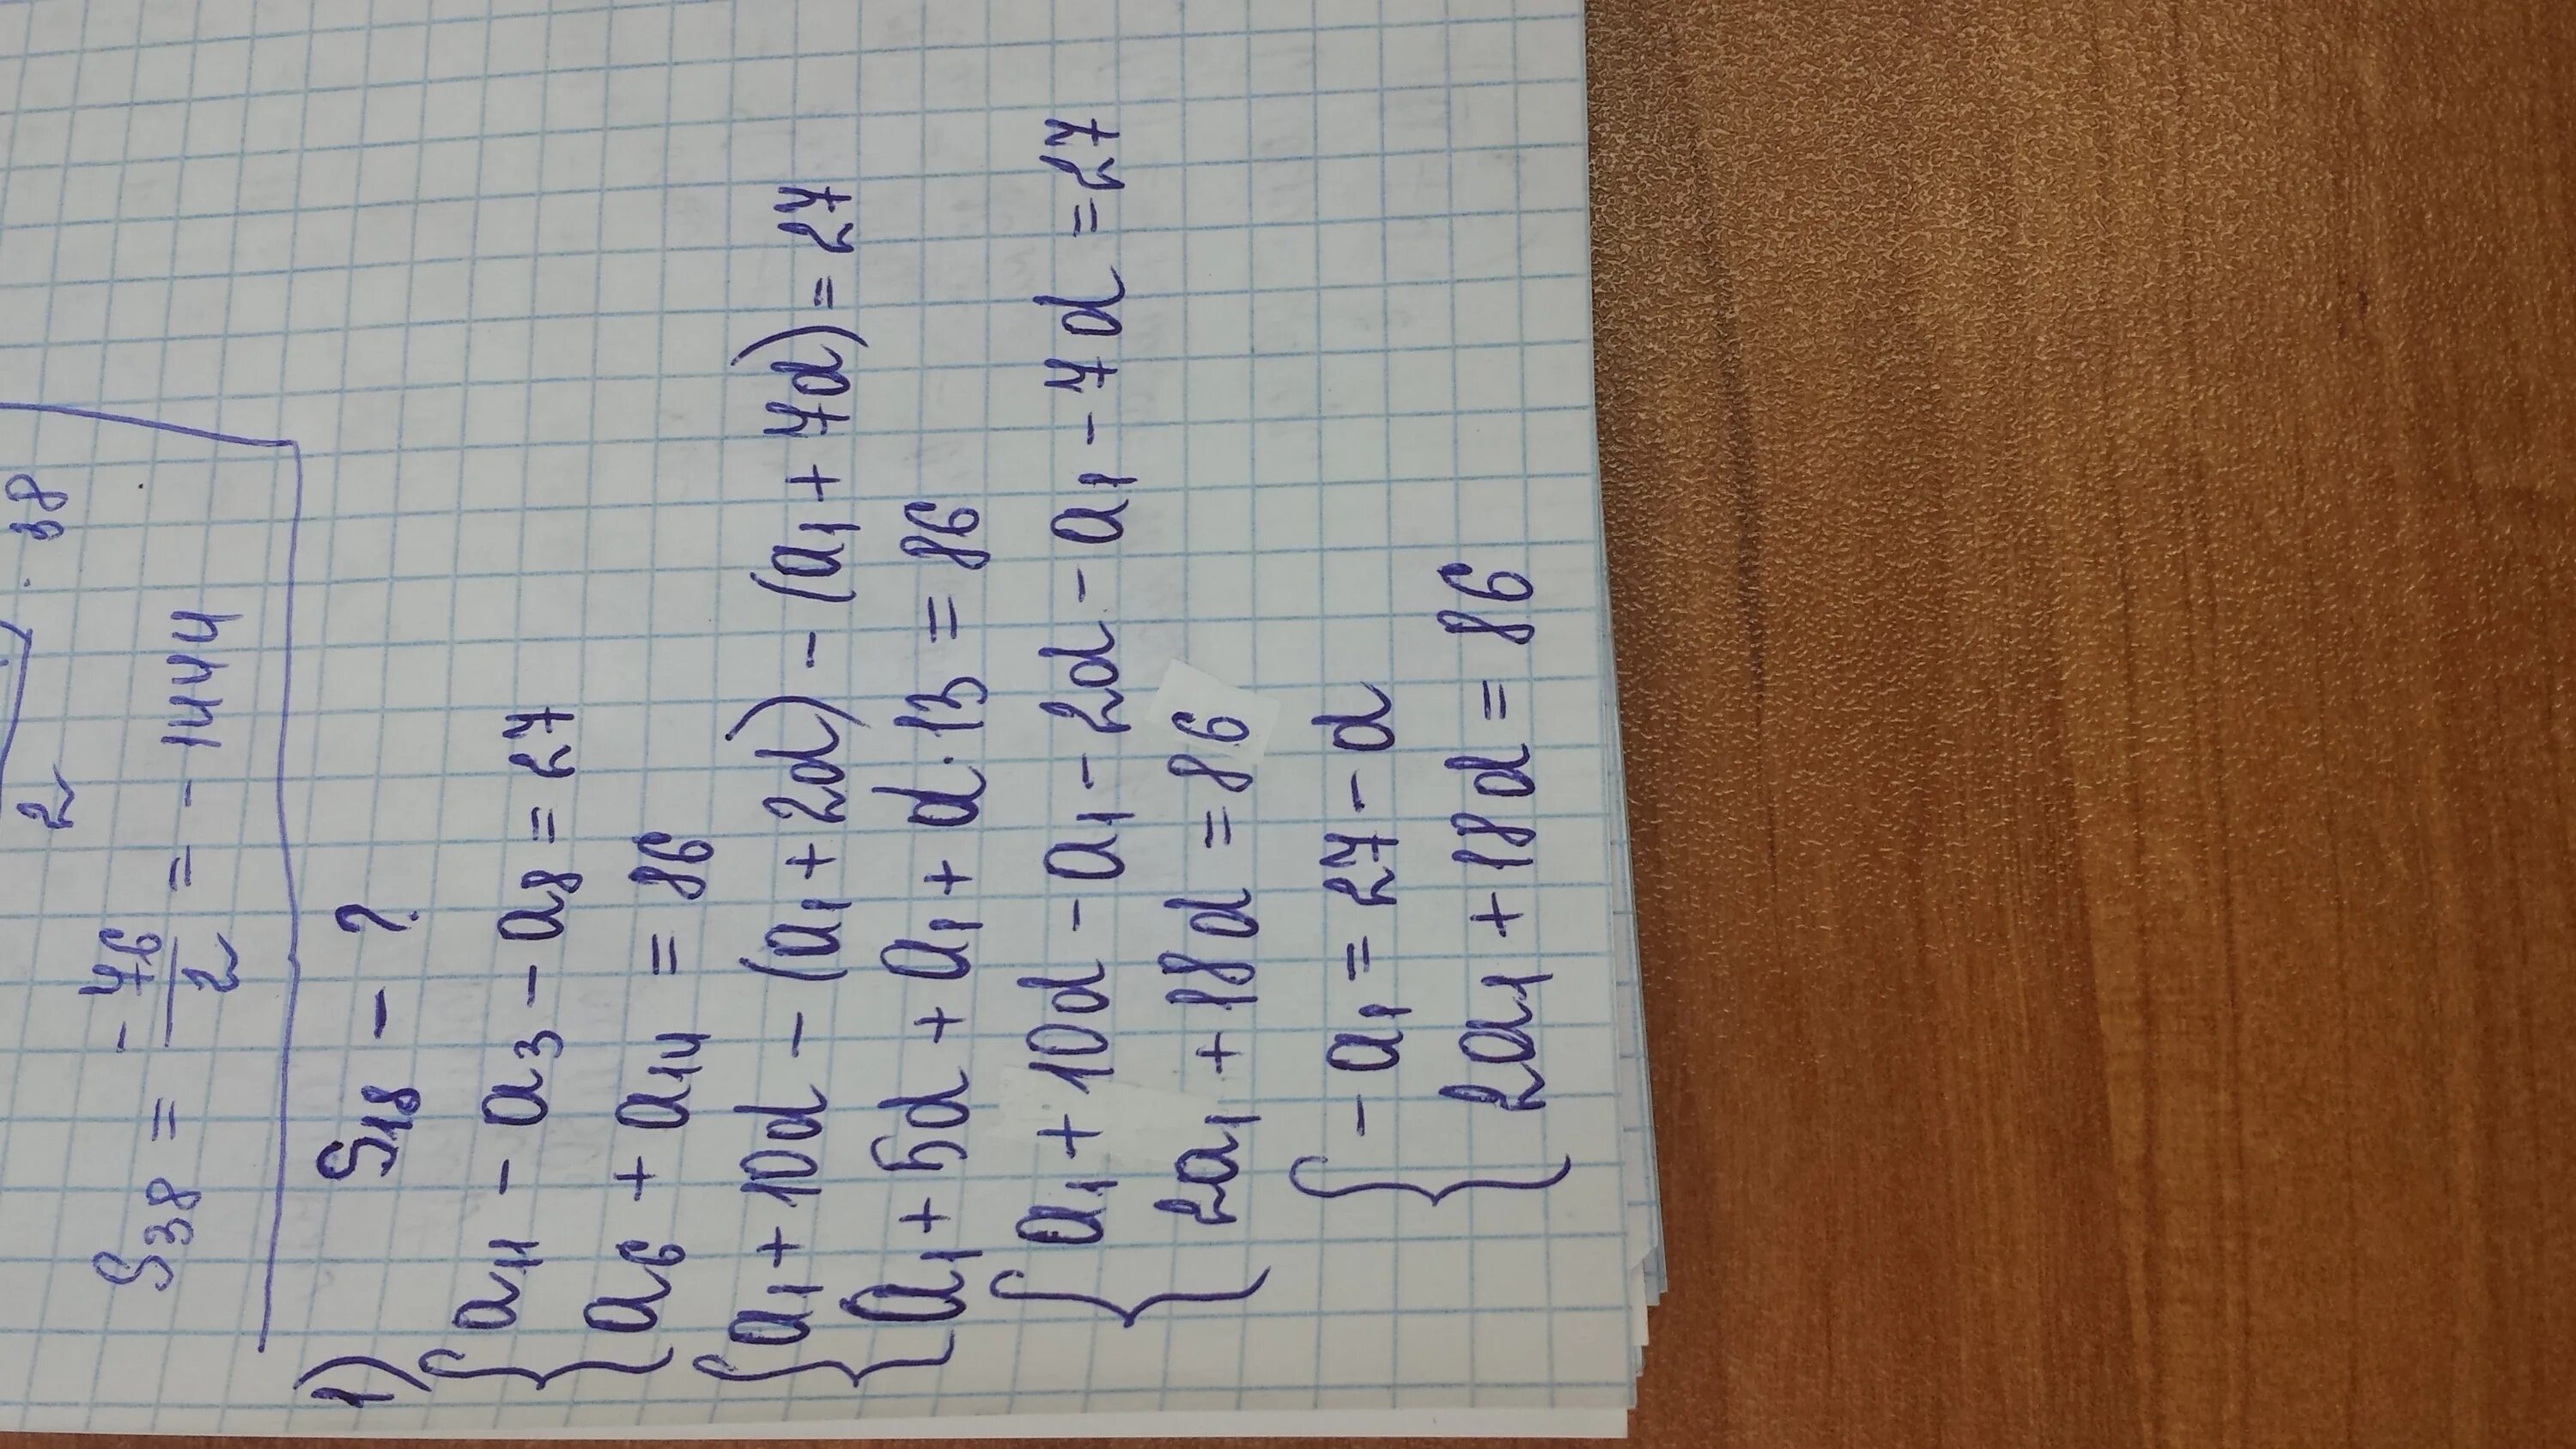 2 · 38
S₃₈ = -76/2 = - 1444
1) S₁₈ - ?
{ a₁₁ - a₃ - a₈ = 27
a₆ + a₁₄ = 86
{ a₁ + 10d - (a₁ + 2d) - (a₁ + 7d) = 27
a₁ + 5d + a₁ + d · 13 = 86
{ a₁ + 10d - a₁ - 2d - a₁ - 7d = 27
2a₁ + 18d = 86
{ - a₁ = 27 - d
2a₁ + 18d = 86